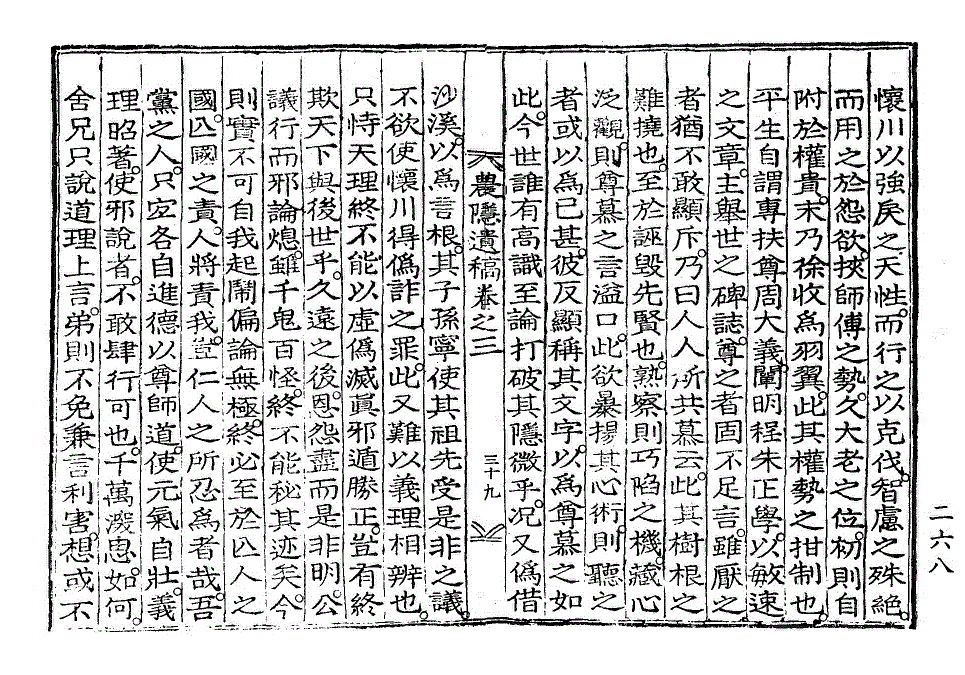 懷川以強戾之天性。而行之以克伐。智慮之殊絶
而用之於怨欲。挾師傅之勢。久大老之位。初則自
附於權貴。末乃徐收爲羽翼。此其權勢之拑制也。
平生自謂專扶尊周大義。闡明程朱正學。以敏速
之文章。主舉世之碑誌。尊之者固不足言。雖厭之
者猶不敢顯斥。乃曰人人所共慕云。此其樹根之
難撓也。至於誣毀先賢也。熟察則巧陷之機。藏心
泛觀。則尊慕之言溢口。此欲暴揚其心術。則聽之
者或以爲已甚。彼反顯稱其文字。以爲尊慕之如
此。今世誰有高識至論打破其隱微乎。况又僞借
農隱遺稿卷之三
三十九
沙溪。以爲言根。其子孫寧使其祖先受是非之議。
不欲使懷川得僞詐之罪。此又難以義理相辨也。
只恃天理終不能以虛僞滅眞邪遁勝正。豈有終
欺天下與後世乎。久遠之後。恩怨盡而是非明。公
議行而邪論熄。雖千鬼百怪。終不能秘其迹矣。今
則實不可自我起鬧偏論無極。終必至於亾人之
國。亾國之責。人將責我。豈仁人之所忍爲者哉。吾
黨之人。只宜各自進德以尊師道。使元氣自壯。義
理昭著。使邪說者。不敢肆行可也。千萬濲思。如何。
舍兄只說道理上言。弟則不免兼言利害。想或不
二六八